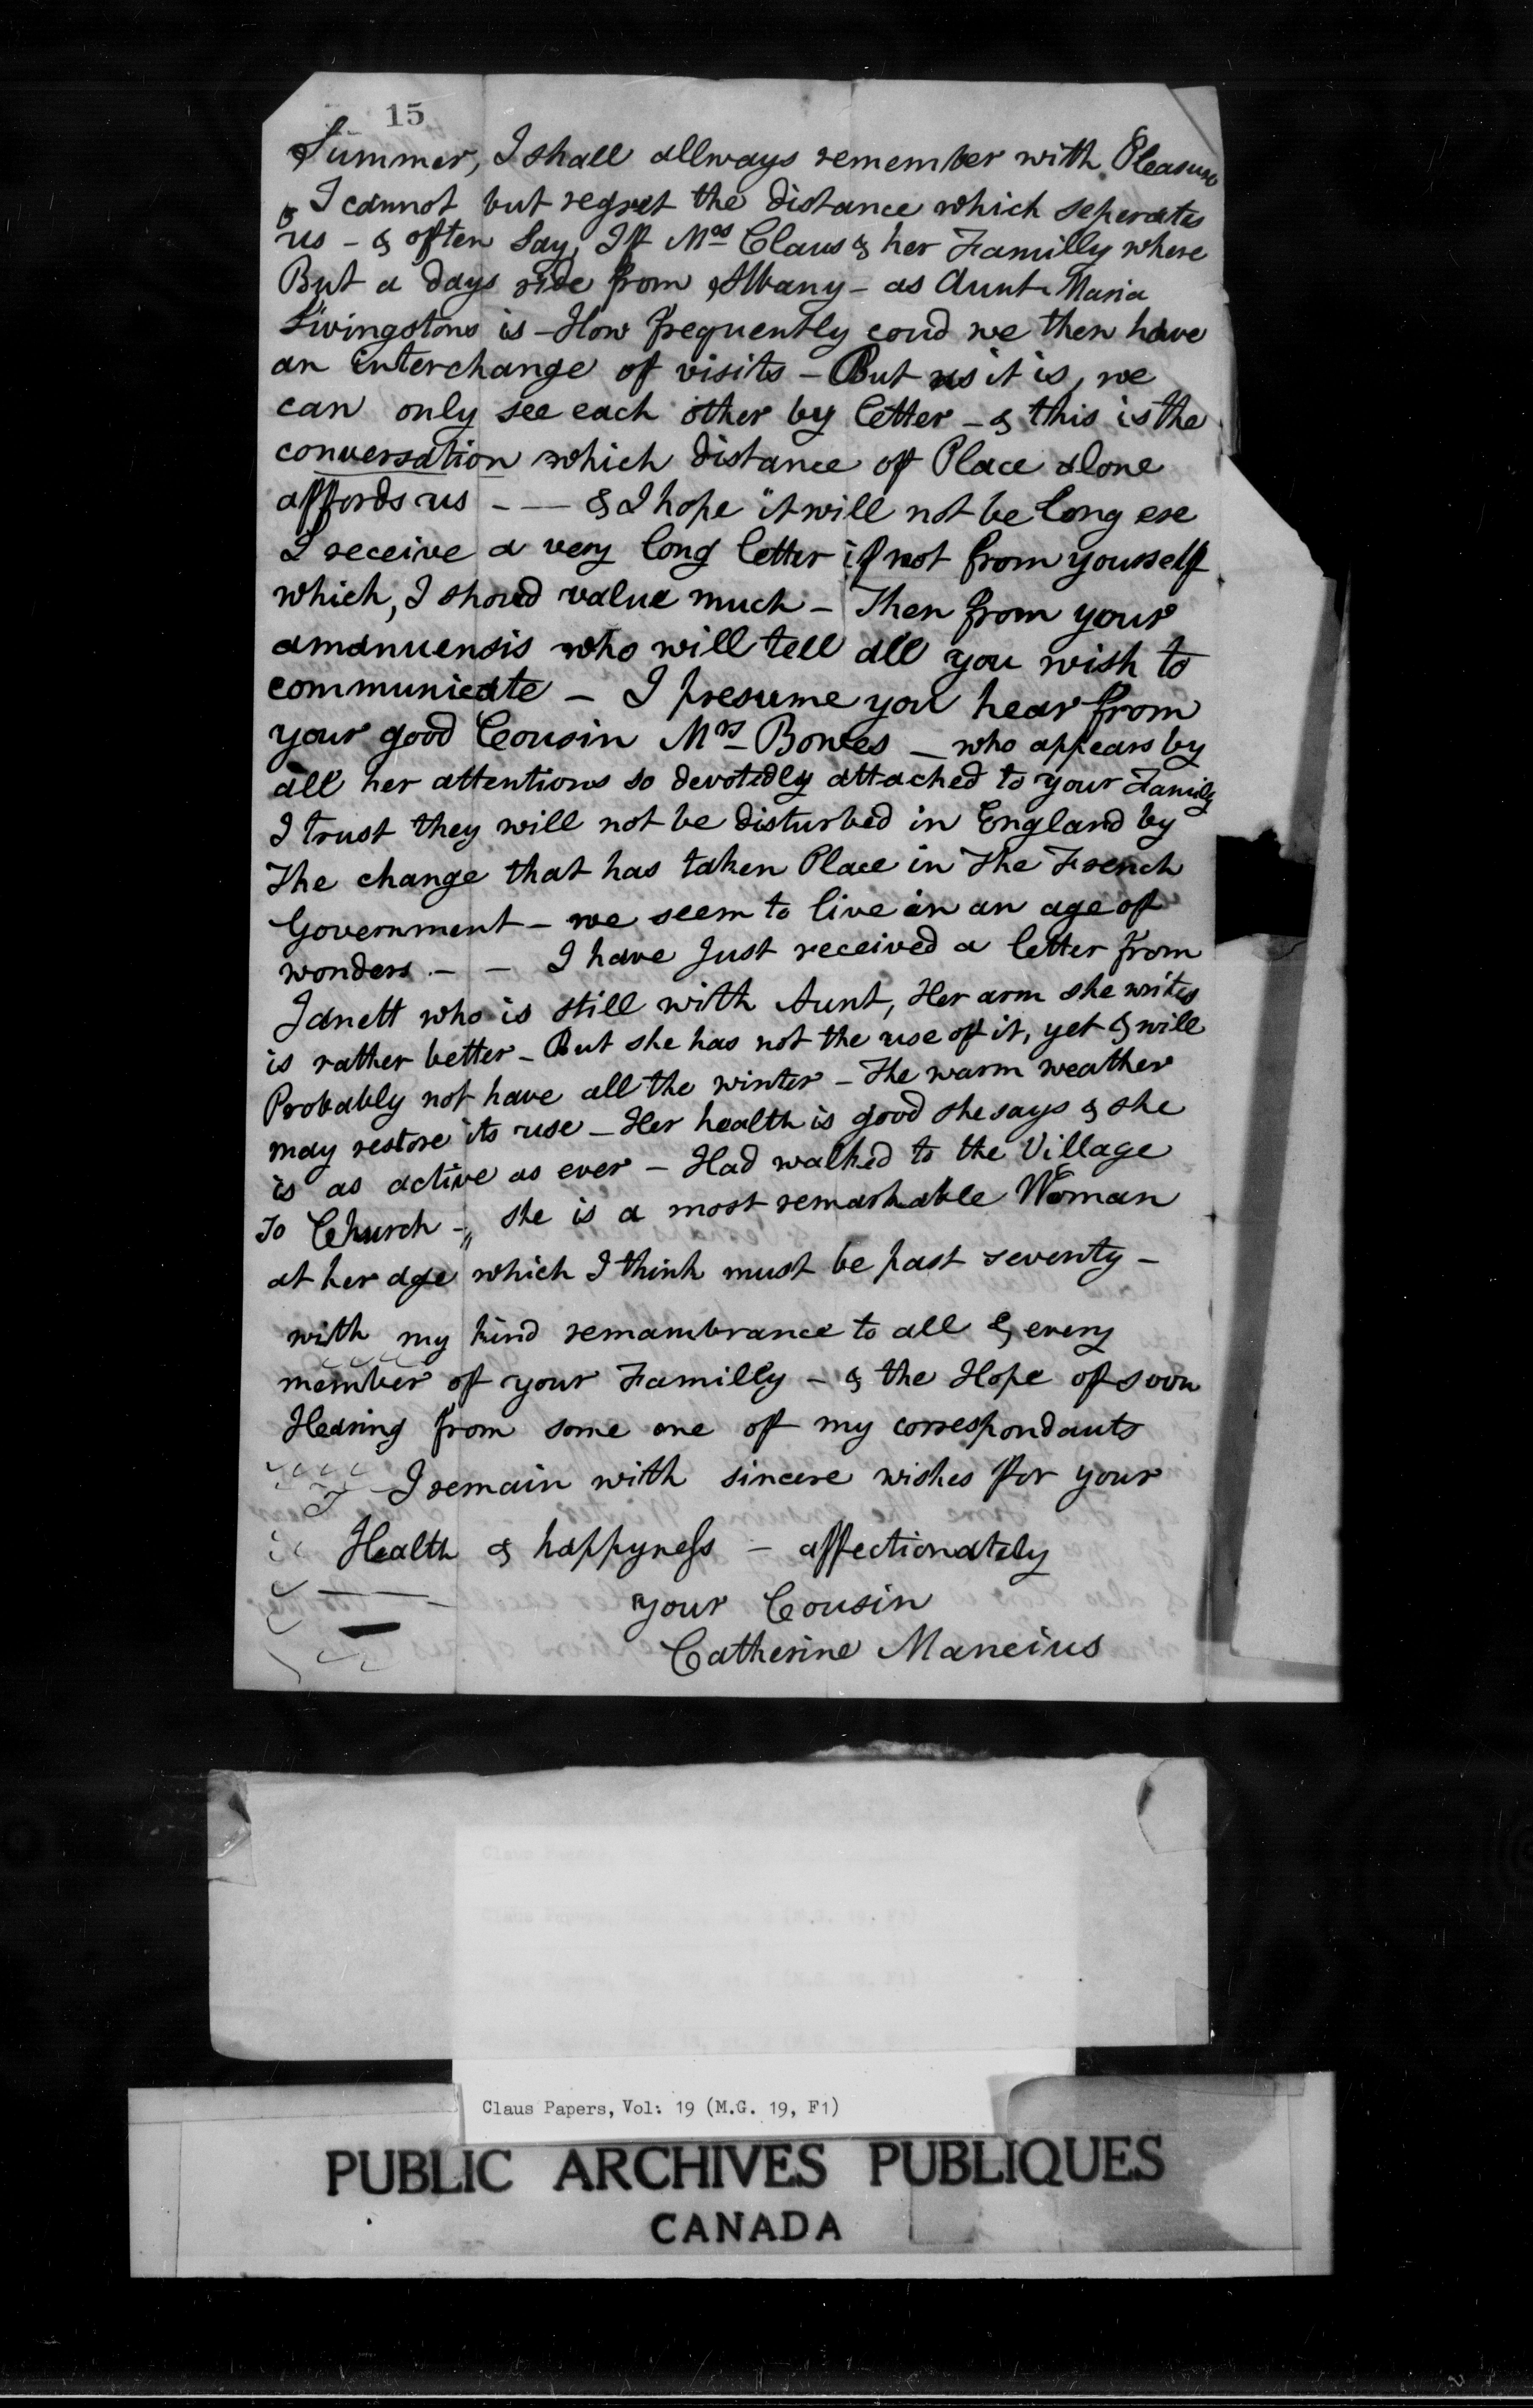 15
Summer, I shall allways remember with Pleasure
& I cannot but regret the distance which seperates
us - & often Say, If Mrs Claus & her Familly where
But a days ride from Albany - as Aunt Maria
Livingstons is - How frequently coud we then have
an interchange of visits - But as it is, we
can only see each other by letter - & this is the
conversation which distance of Place alone
affords us - — & I hope it will not be long ere
I receive a very long letter if not from yourself
which, I shoud value much - Then from your
amanuensis who will tell all you wish to
communicate - I presume you hear from
your good Cousin Mrs Bowes - who appears by
all her attentions so devotedly attached to your Family
I trust they will not be disturbed in England by
The change that has taken Place in The French
Government - we seem to live in an age of
wonders - - I have Just received a letter from
Janett who is still with Aunt, Her arm she writes
is rather better - But she has not the use of it, yet & will
Probably not have all the winter - The warm weather
may restore its use - Her health is good she says & she
is as active as ever - Had walked to the Village
To Church -„ she is a most remarkable Woman
at her age which I think must be past seventy -
with my kind remambrance to all & every
member of your Familly - & the Hope of soon
Hearing from some one of my correspondants
I remain with sincere wishes for your
Health & happyness - affectionately
your Cousin
Catherine Mancius
Claus Papers, Vol: 19 (M.G. 19, F1)
PUBLIC ARCHIVES PUBLIQUES
CANADA